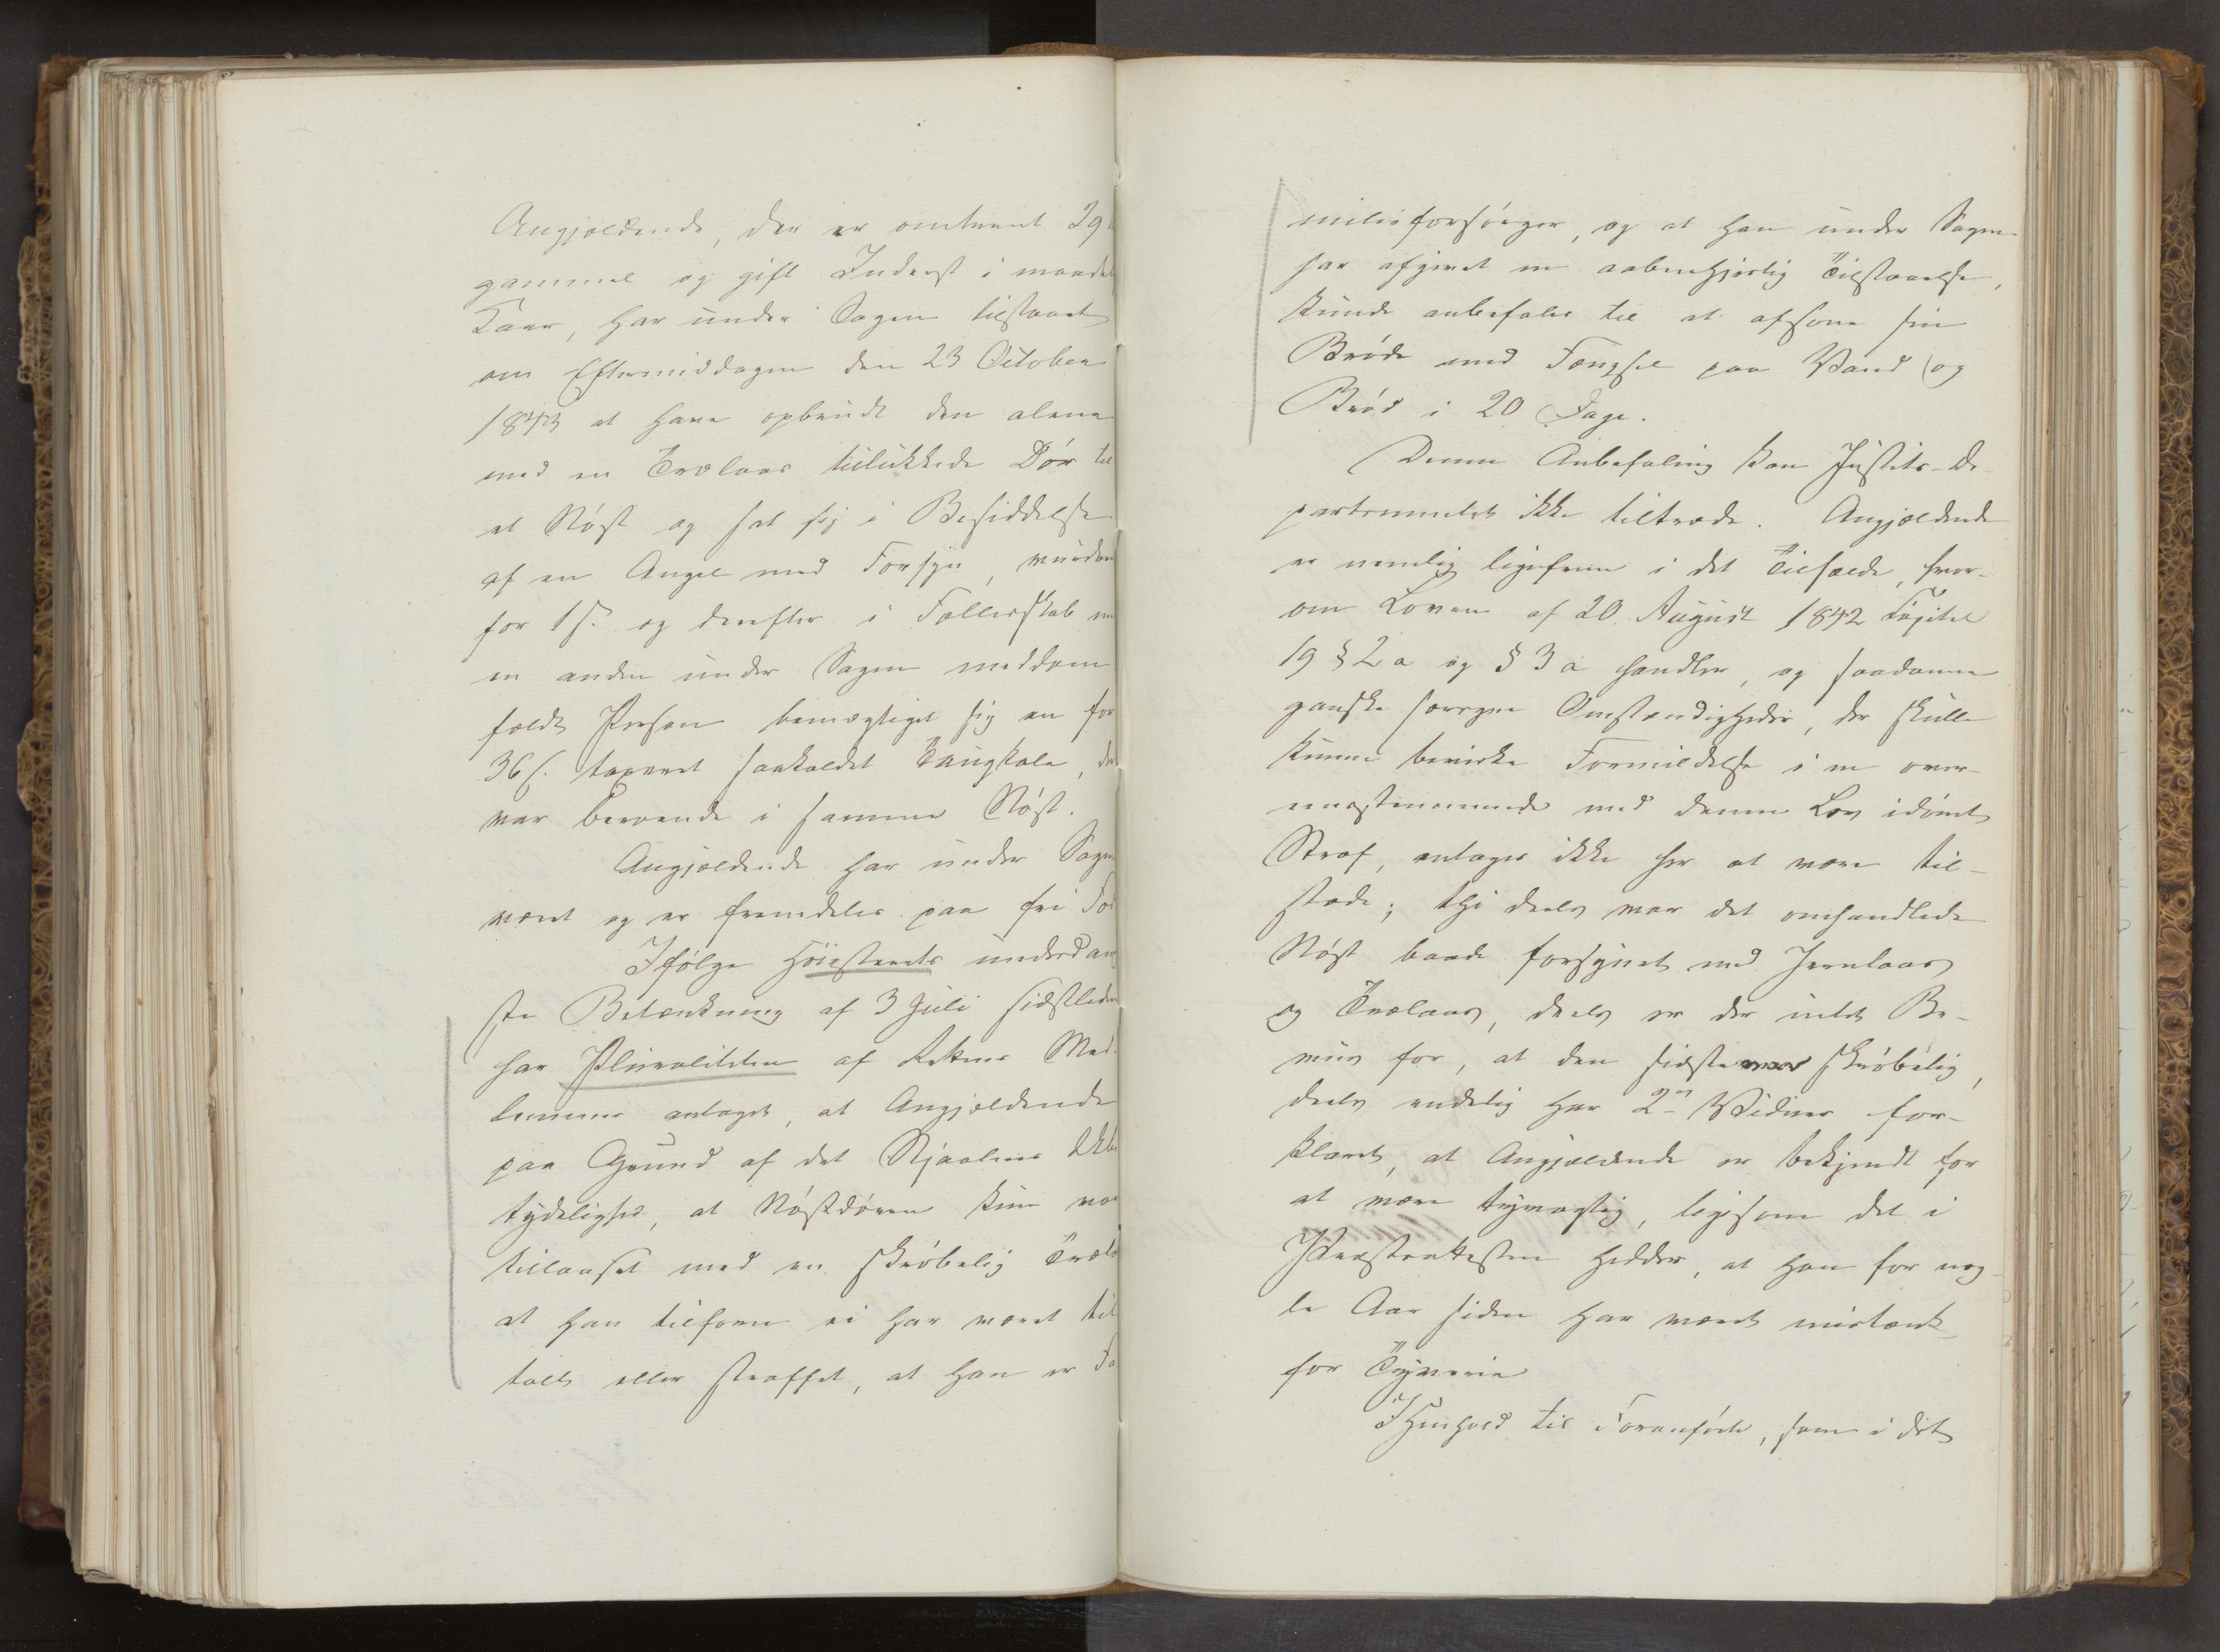 Angjældende, der er omtrent 29
gammel og gift Inderst i maade
Kaar, har under Sagen tilstaaet
om Eftermiddagen den 23 October
1843 at have opbrudt den alene
med en Trælaas tillukkede Dør til
et Nøst og sat sig i Besiddelse
af en Angel med Forsyn, vurder
for 1 ß. og derefter i Fællesskab m
en anden under Sagen meddom
fældt Person bemægtiget sig en for
36 ß. taxeret saakaldet Taugkole, de
var beroende i samme Nøst.
Angjældende har under Sagen
været og er fremdeles paa fri Fod
Ifølge Høiesterets underdan
ste Betænkning af 3 Juli sidstleden
har Pluraliteten af Rettens Med
lemmer antaget, at Angjældende
paa Grund af det Stjaalnes Ube
tydelighed, at Nøstdøren kun var
tillaaset med en skrøbelig Træla
at han tilforn ei har været til
talt eller straffet, at han er Fa
milieforsørger, og at han under Sagen
har afgivet en aabenhjertig Tilstaaelse,
kunde anbefales til at afsone sin
Brøde med Fængsel paa Vand og
Brød i 20 Dage.
Denne Anbefaling kan Justits-De-
partementet ikke tiltræde. Angjældende
er nemlig ligefrem i det Tilfælde, hvor-
om Loven af 20 August 1842 Capitel
19 § 2 a og § 3 a handler, og saadanne
ganske særegne Omstændigheder, der skulle
kunne bevirke Formildelse i en over-
eensstemmende med denne Lov idømt
Straf, antages ikke her at være til-
stede; thi deels var det omhandlede
Nøst baade forsynet med Jernlaas
og Trælaas, deels er der intet Be-
viis for, at den sidste var skrøbelig,
deels endelig har 2de Vidner for-
klaret, at Angjældende er bekjendt for
at være tyvagtig, ligesom det i
Præsteattesten hedder, at han for nog-
le Aar siden har været mistænkt
for Tyverie
I Henhold til Foranførte, som i det